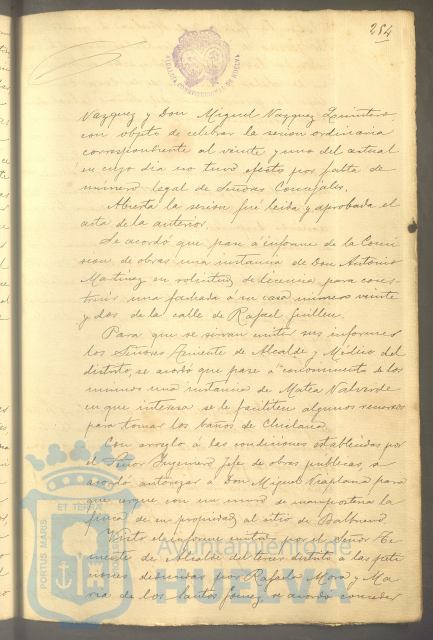 284
ALCALDIA CONSTITUCIONAL DE HUELVA
Vazquez y Don Miguel Vazquez Quintero
con objeto de celebrar la sesion ordinaria
correspondiente al veinte y uno del actual
en cuyo dia no tuvo efecto por falta de
número legal de Señores Concejales.
Abierta la sesion fué leida y aprobada el
acta de la anterior.
Se acordó que pase á informe de la Comi
sion de obras una instancia de Don Antonio
Martinez en solicitud de licencia para cons
truir una fachada á su casa número veinte
y dos de la calle de Rafael Guillen.
Para que se sirvan emitir sus informes
los Señores Teniente de Alcalde y Médico del
distrito, se acordó que pase á conocimiento de los
mismos una instancia de Matea Valverde
en que interesa se le faciliten algunos recursos
para tomar los baños de Chiclana.
Con arreglo á las condiciones establecidas por
el Señor Ingeniero Jefe de obras publicas, se
acordó autorizar á Don Miguel para
que cerque con un muro de mamposteria la
finca de su propiedad al sitio de
Visto el informe emitido por el Señor Te
niente de Alcalde del tercer distrito á las peti
ciones deducidas por Rafaela Mora y Ma
ria de los Santos Gomez se acordó conceder
ET TERRÆ
PORTUS MARIS
CUSTODIA
Ayuntamiento de
HUELVA